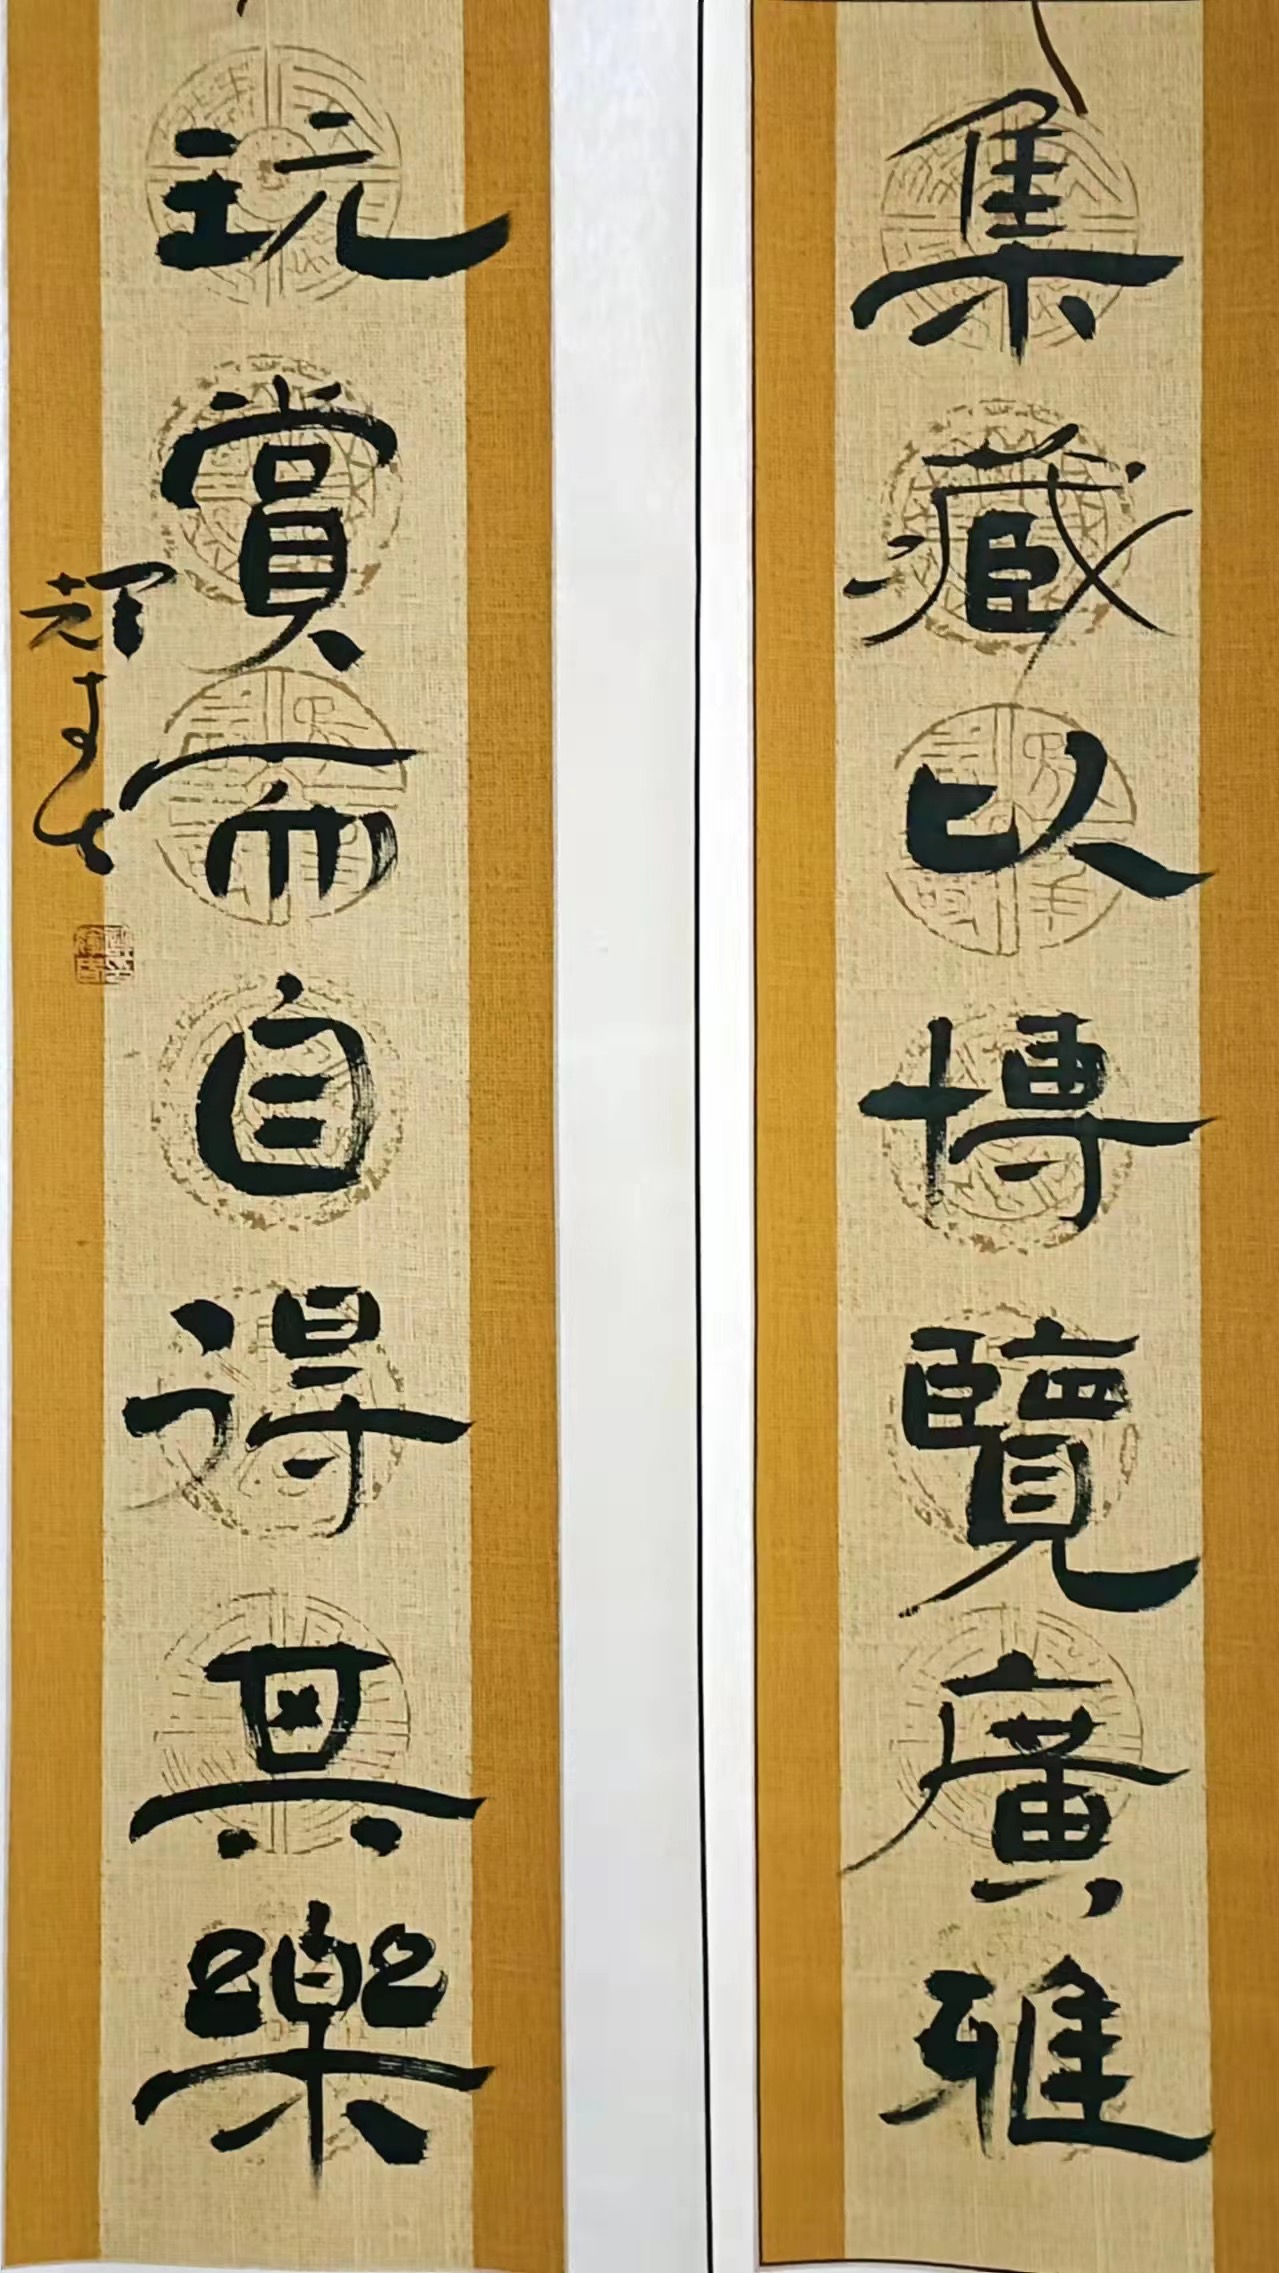 集藏以博覽廣雅
玩賞而自得其樂